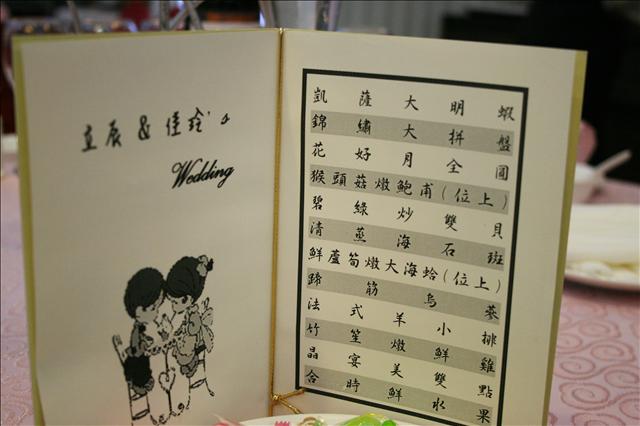 立辰 & 佳玲's
Wedding
凱薩大明蝦
錦繡大拼盤
花好月全圓
猴頭菇燉鮑甫(位上)
碧綠炒雙貝
清蒸海石斑
鮮蘆筍燉大海蛤(位上)
蹄筋烏蔘
法式羊小排
竹笙燉鮮雞
晶宴美雙點
合時鮮水果